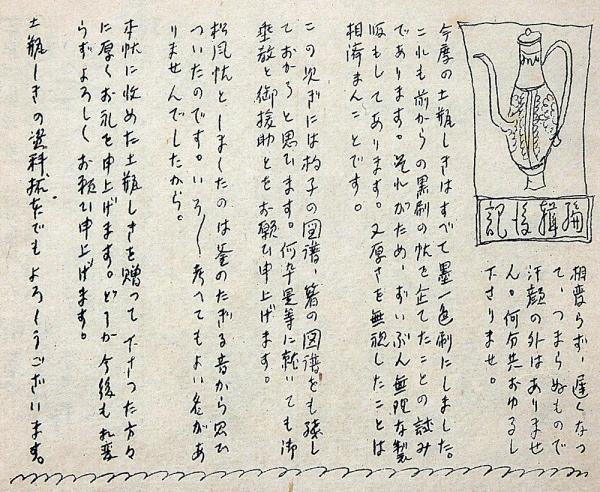 編輯後記
相変らず、遅くなつ
て、つまらぬもので
汗顔の外はありませ
ん。何分共おゆるし
下さりませ。
今度の土瓶しきはすべて墨一色刷にしました。
これも前からの黒刷の帖を企てたことの試み
であります。それがため、ずいぶん無理な製
版もしてあります。又厚さを無視したことは
相済まんことです。
この次ぎには杓子の図譜、箸の図譜をも残し
ておかうと思ひます。何卒是等に就いても御
垂教と御援助とをお願ひ申上げます。
松風帖としましたのは釜のたぎる音から思ひ
ついたのです。いろ〳〵考へてもよい名があ
りませんでしたから。
本帖に収めた土瓶しきを贈つて下さつた方々
に厚くお礼を申上げます。どうか今後も相変
らずよろしくお願ひ申上げます。
土瓶しきの資料拓本でもよろしうございます。